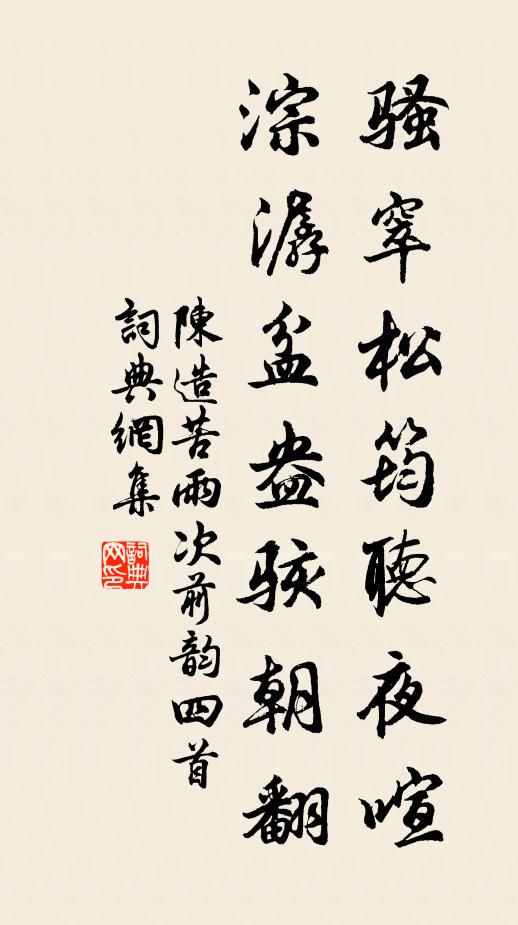 騷窣松筠聽夜喧
淙潺盆盎駭朝翻
陳造苦雨次前韵四首
詞典網集
詞典网印